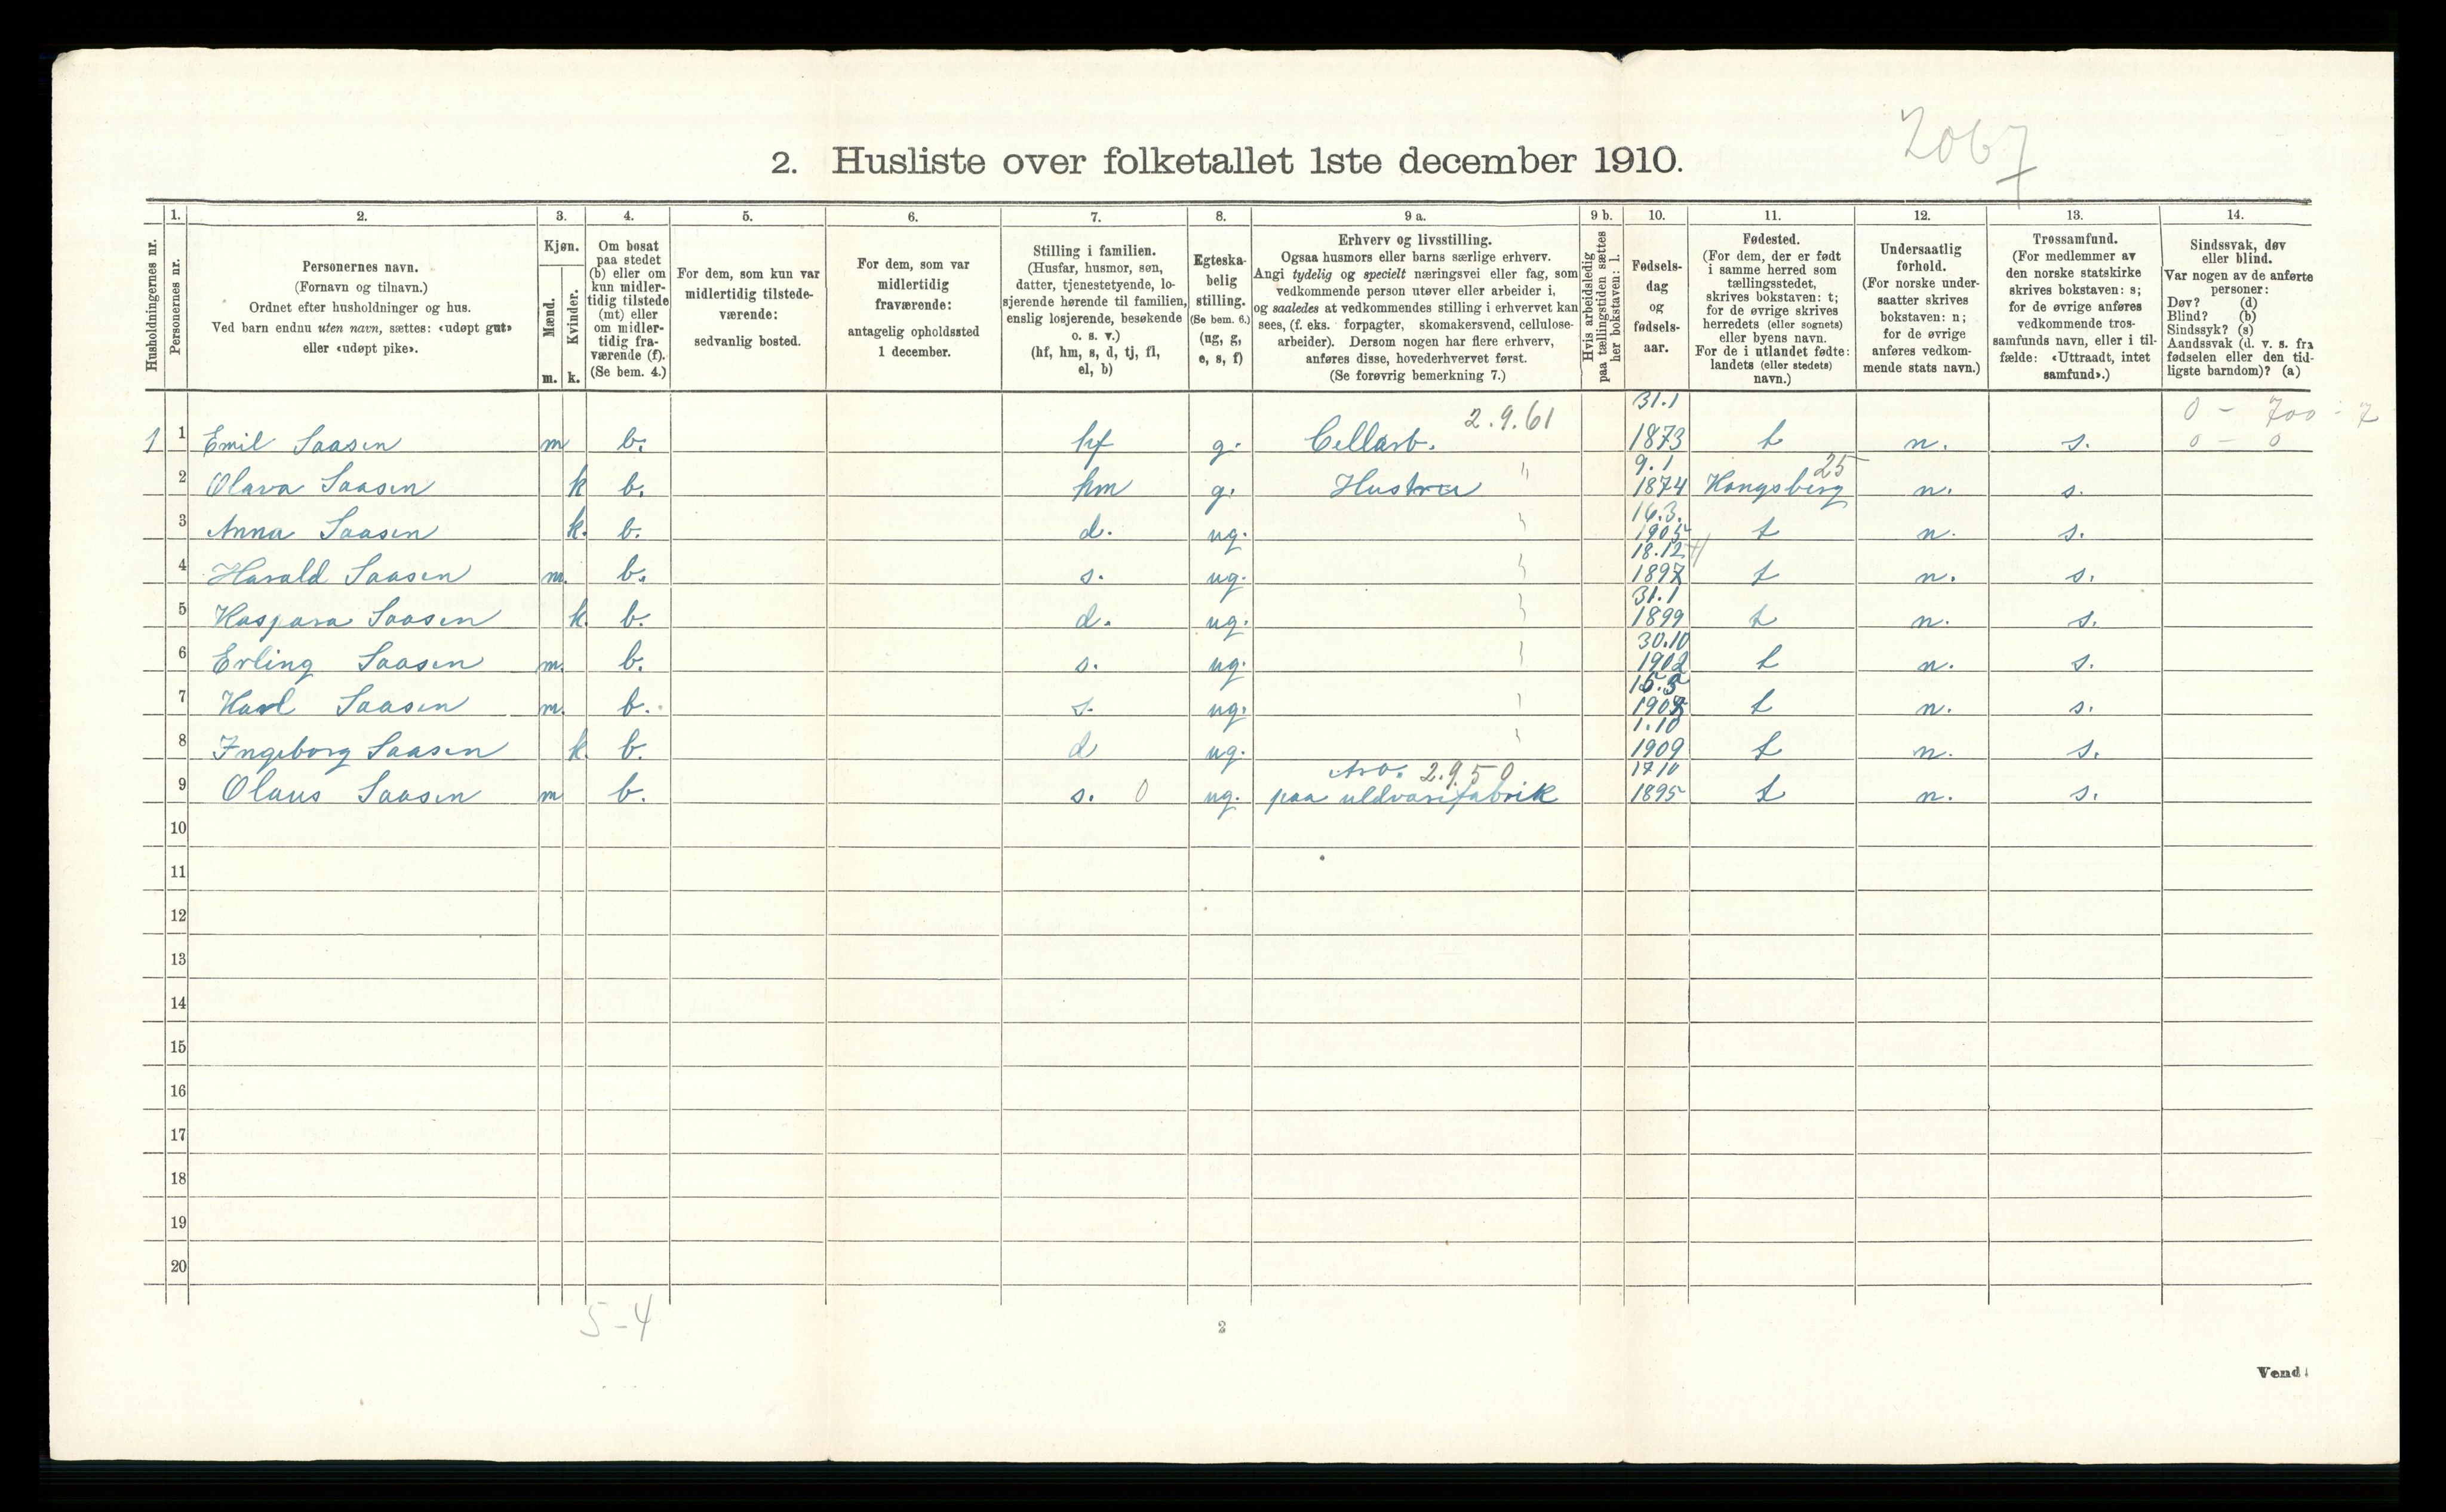 2067
2. Husliste over folketallet 1ste december 1910.
Husholdningernes nr.
1.
Personernes nr.
2.
Personernes navn.
(Fornavn og tilnavn.)
Ordnet efter husholdninger og hus.
Ved barn endnu uten navn, sættes: «udøpt gut»
eller «udøpt pike».
3.
Kjøn.
Mænd.
m.
Kvinder.
k.
4.
Om bosat
paa stedet
(b) eller om
kun midler-
tidig tilstede
(mt) eller
om midler-
tidig fra-
værende (f).
(Se bem. 4.)
5.
For dem, som kun var
midlertidig tilstede-
værende:
sedvanlig bosted.
6.
For dem, som var
midlertidig
fraværende:
antagelig opholdssted
1 december.
7.
Stilling i familien.
(Husfar, husmor, søn,
datter, tjenestetyende, lo-
sjerende hørende til familien,
enslig losjerende, besøkende
o. s. v.)
(hf, hm, s, d, tj, fl,
el, b)
8.
Egteska-
belig
stilling.
(Se bem. 6.)
(ug, g,
e, s, f)
9 a.
Erhverv og livsstilling.
Ogsaa husmors eller barns særlige erhverv.
Angi tydelig og specielt næringsvei eller fag, som
vedkommende person utøver eller arbeider i,
og saaledes at vedkommendes stilling i erhvervet kan
sees, (f. eks. forpagter, skomakersvend, cellulose-
arbeider). Dersom nogen har flere erhverv,
anføres disse, hovederhvervet først.
(Se forøvrig bemerkning 7.)
9 b.
Hvis arbeidsledig
paa tællingstiden sættes
her bokstaven: l.
10.
Fødsels-
dag
og
fødsels-
aar.
11.
Fødested.
(For dem, der er født
i samme herred som
tællingsstedet,
skrives bokstaven: t;
for de øvrige skrives
herredets (eller sognets)
eller byens navn.
For de i utlandet fødte:
landets (eller stedets)
navn.)
12.
Undersaatlig
forhold.
(For norske under-
saatter skrives
bokstaven: n;
for de øvrige
anføres vedkom-
mende stats navn.)
13.
Trossamfund.
(For medlemmer av
den norske statskirke
skrives bokstaven: s;
for de øvrige anføres
vedkommende tros-
samfunds navn, eller i til-
fælde: «Uttraadt, intet
samfund».)
14.
Sindssvak, døv
eller blind.
Var nogen av de anførte
personer:
Døv? (d)
Blind? (b)
Sindssyk? (s)
Aandssvak (d. v. s. fra
fødselen eller den tid-
ligste barndom)? (a)
2.9.61 31.1 0 - 700 - 7
1 1 Emil Saasen m b. hf g. Cellarb. 1873 t n. s. 0 - 0
9.1 25
2 Olava Saasen k b. hm g. Hustru " 1874 Kongsberg n. s.
16.3.
3 Anna Saasen k. b. d. ug. 1905 t n. s.
18.12
4 Harald Saasen m. b. s. ug. 1897 t n. s.
31.1
5 Kaspara Saasen k. b. d. ug. 1899 t n. s.
30.10
6 Erling Saasen m. b. s. ug. 1902 t n. s.
15.5
7 Karl Saasen m. b. s. ug. t n. s.
1.10
8 Ingeborg Saasen k. b. d ug. 1909 t n. s.
2.9.50 17 10
9 Olaus Saasen m b. s. 0 ug. paa uldvarefabrik 1895 t n. s.
10
11
12
13
14
15
16
17
18
19
20
5-4
2
Vend!